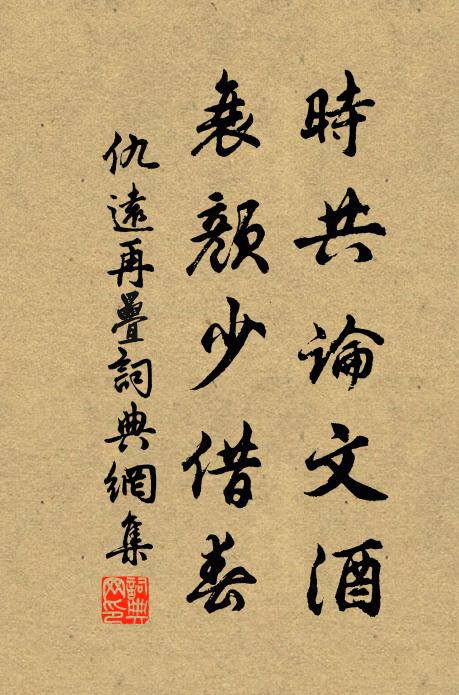 時共論文酒
衰顏少借春
仇遠再疊詞典網集
詞典网印